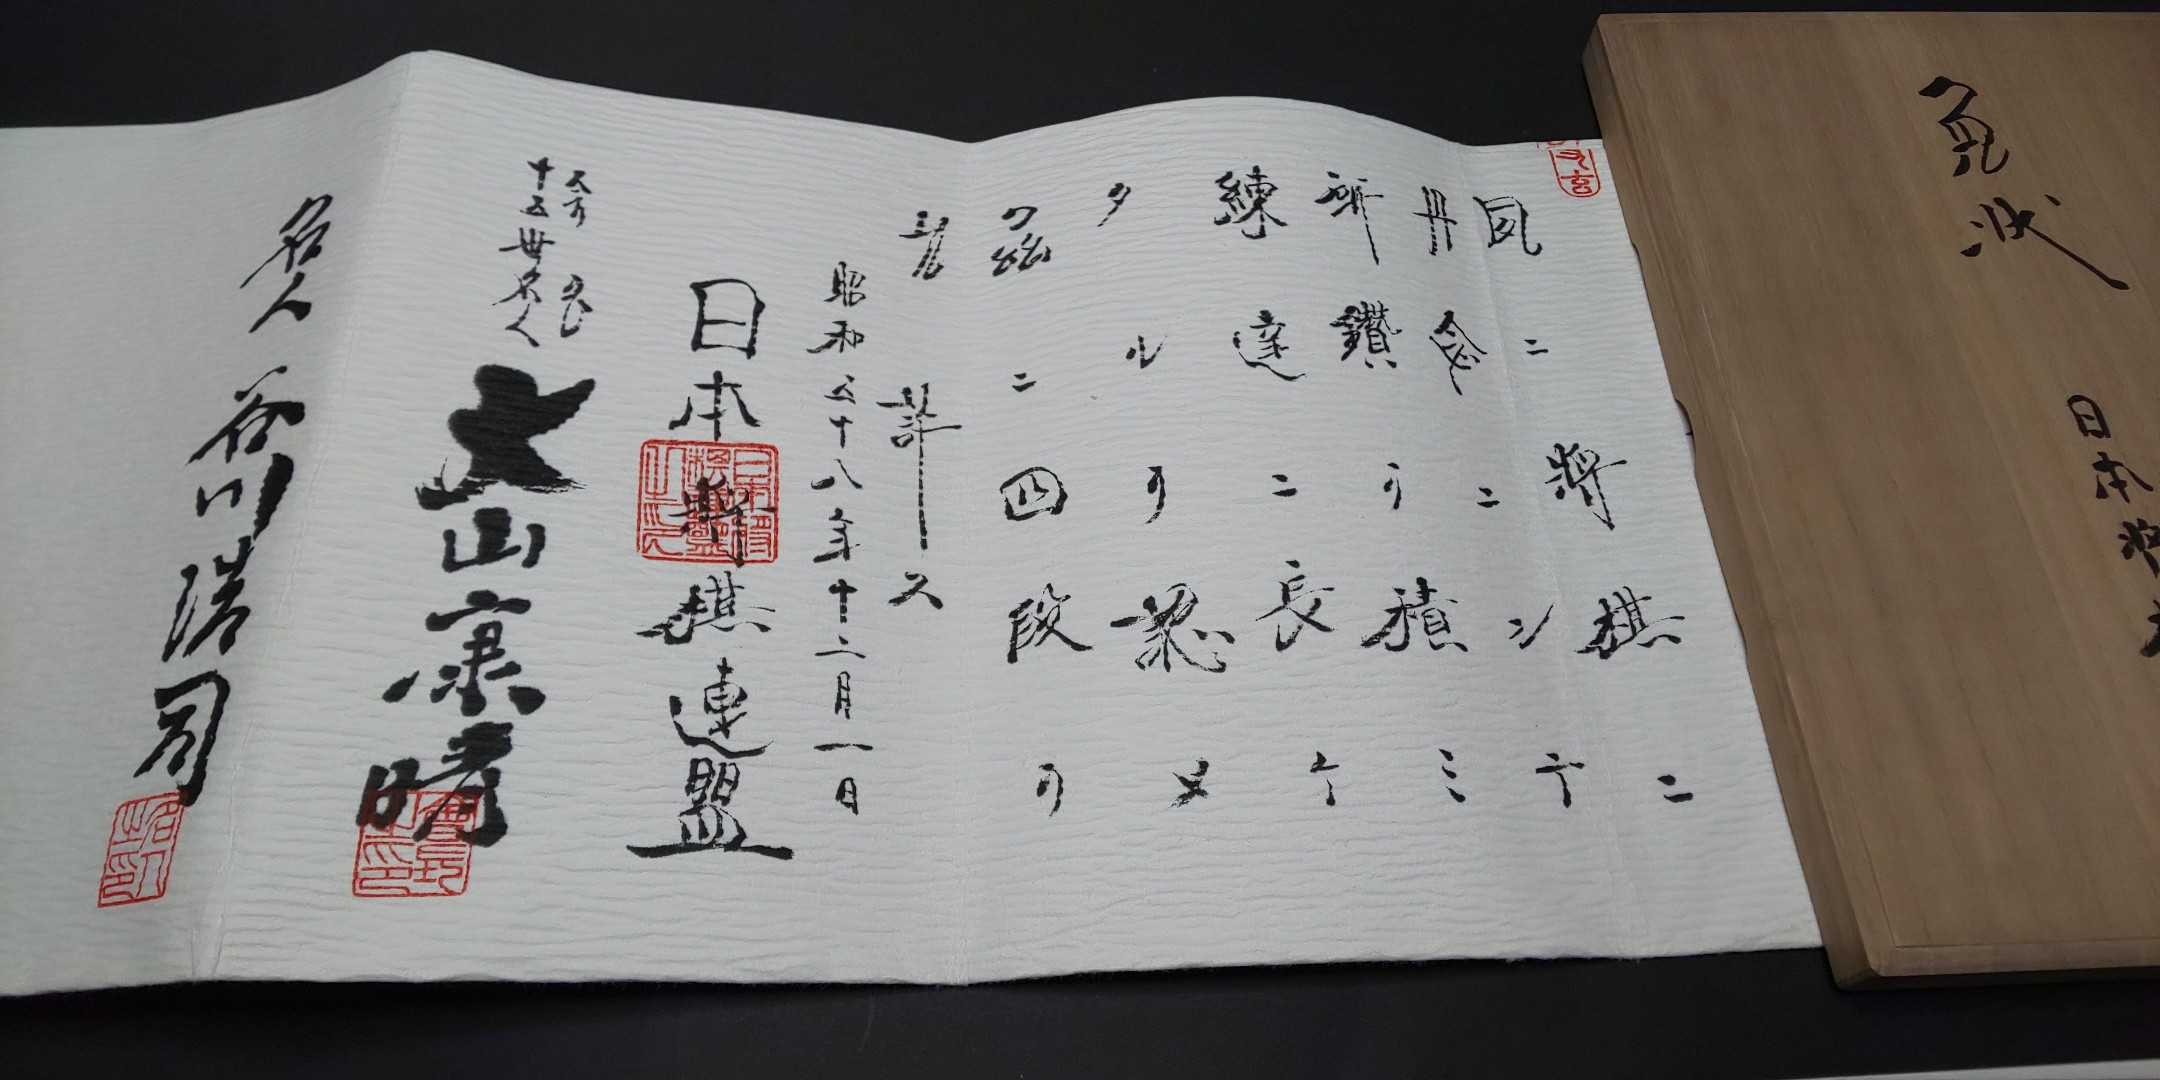 免状
日本将
夙ニ将棋ニ
丹念ニシテ
研鑽ヲ積ミ
練達ニ長ケ
タルヲ認メ
茲ニ四段ヲ
允許ス
昭和五十八年十二月一日
日本将棋連盟
会長
十五世名人
大山康晴
名人 谷川浩司